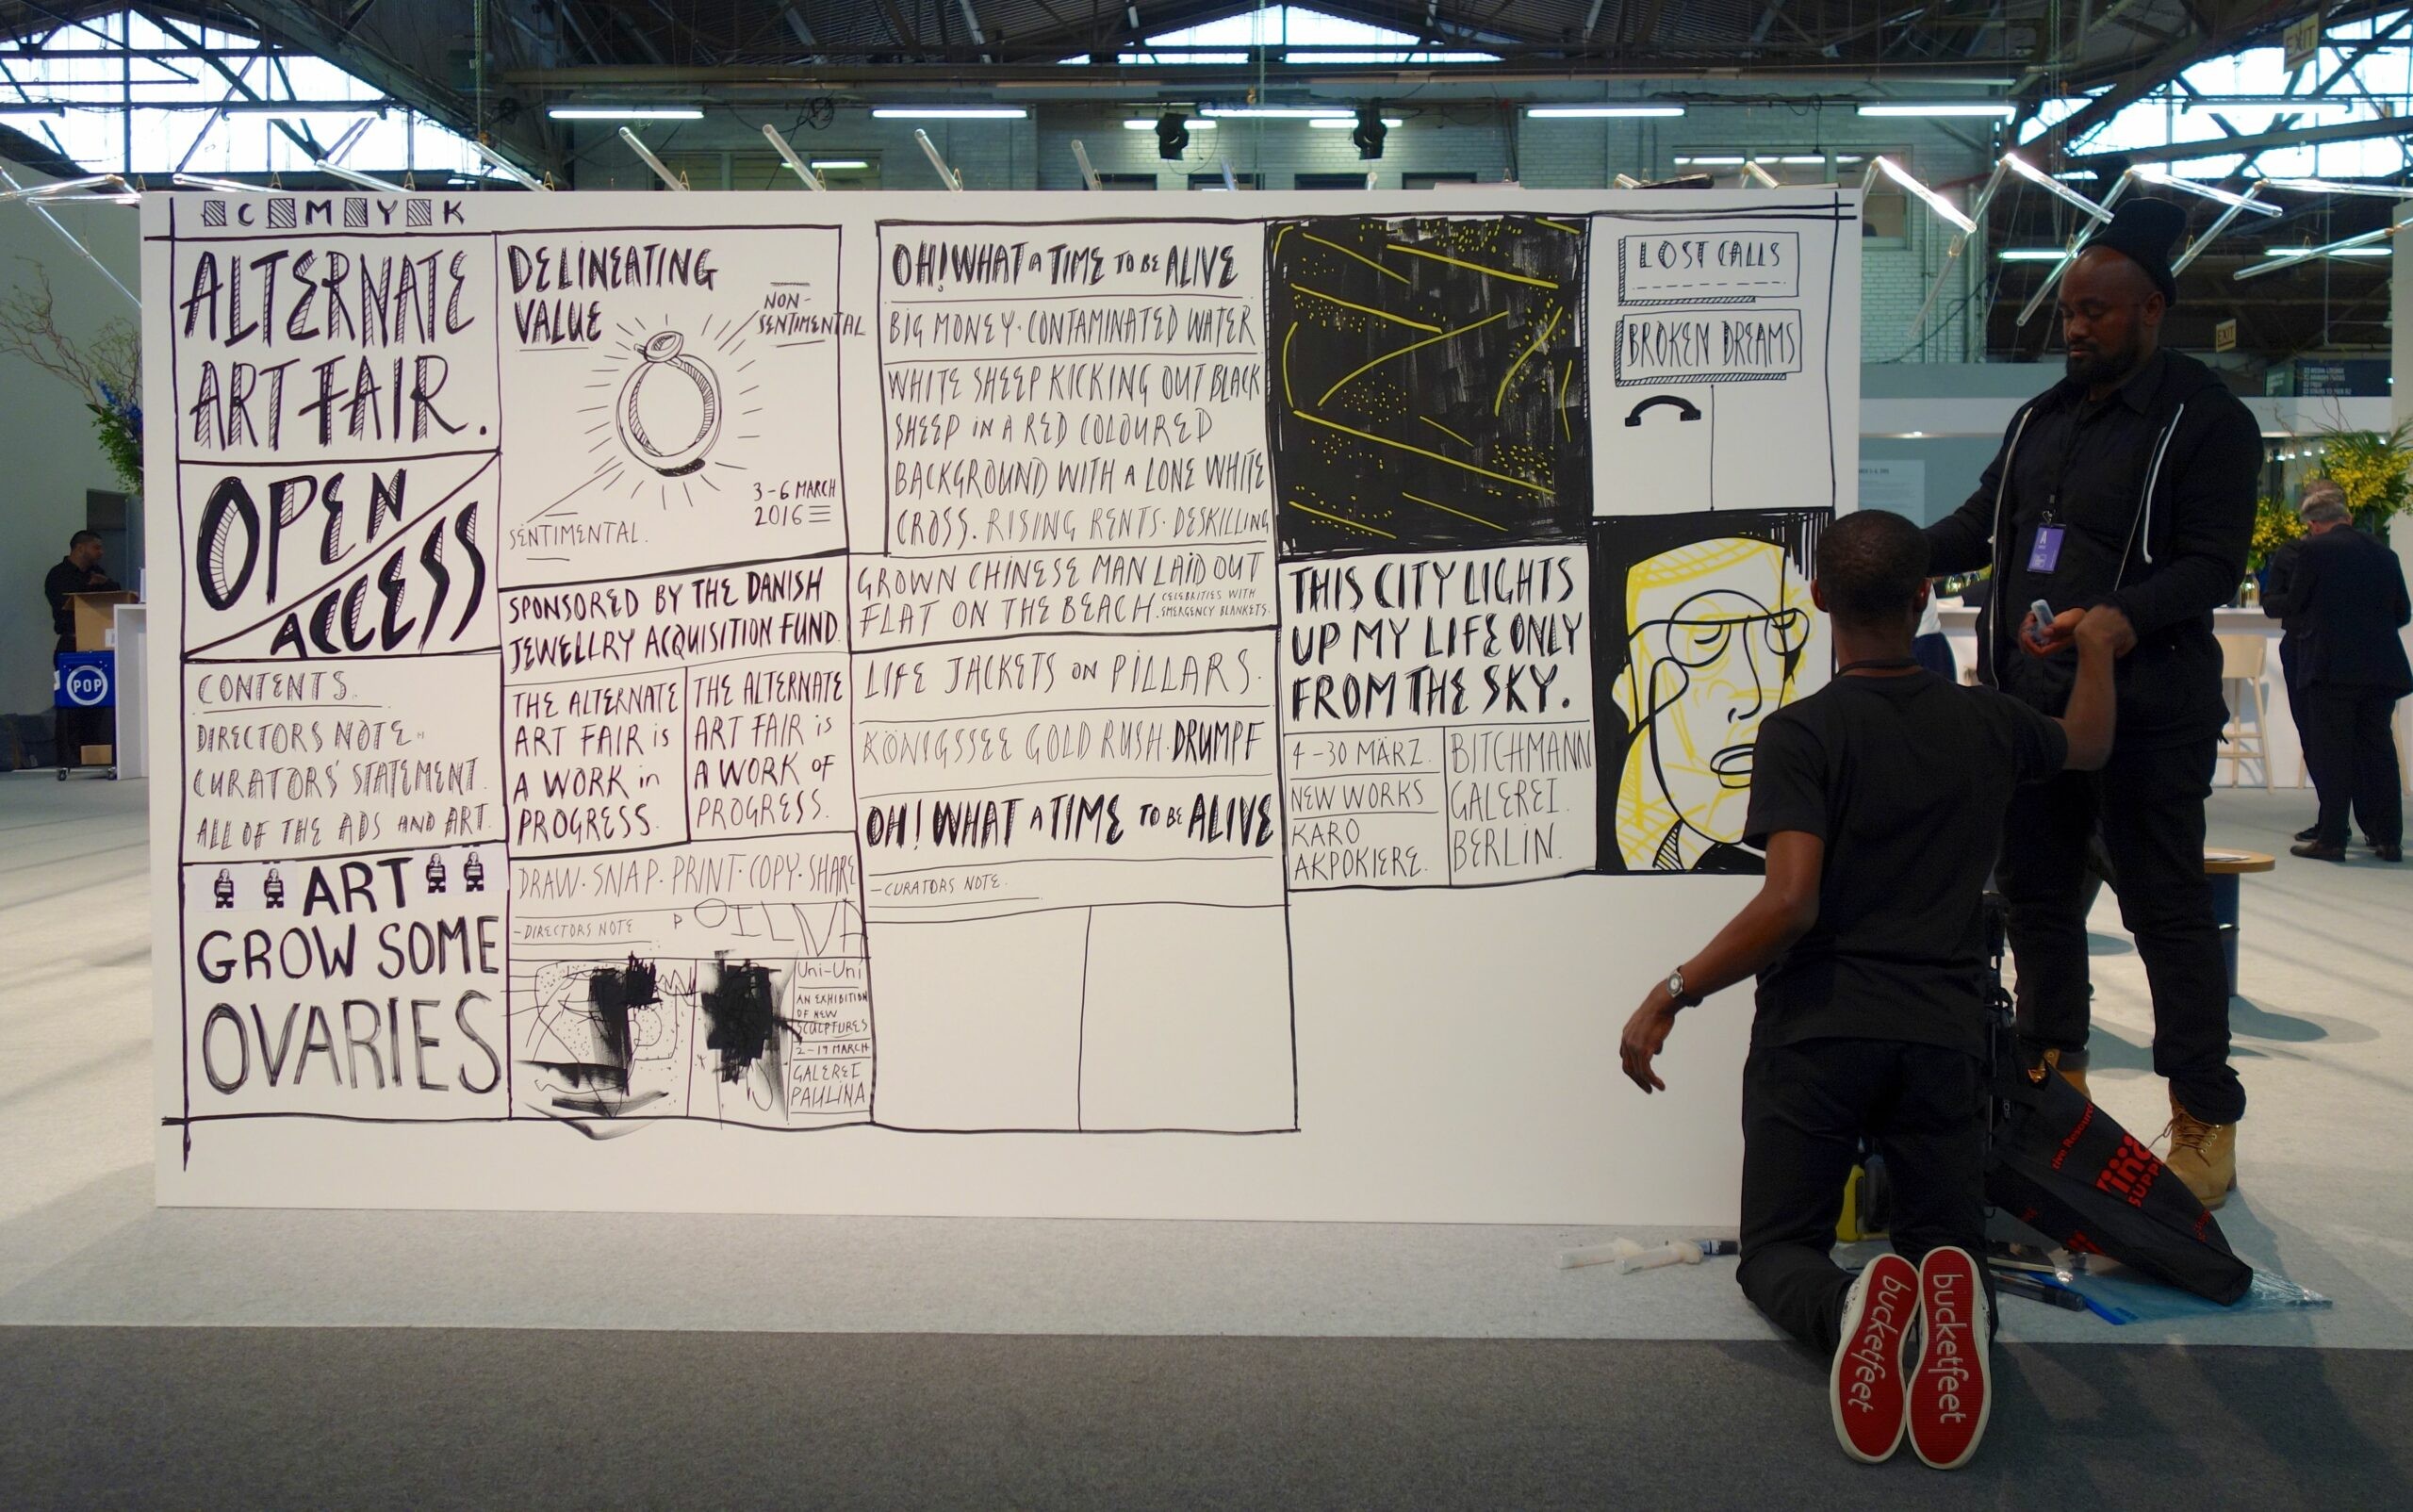 C M Y K
ALTERNATE
ART FAIR.
OPEN
ACCESS
CONTENTS
DIRECTORS NOTE
CURATORS' STATEMENT.
ALL OF THE ADS AND ART.
ART
GROW SOME
OVARIES
DELINEATING
VALUE
NON-
SENTIMENTAL
3-6 MARCH
2016
SENTIMENTAL.
SPONSORED BY THE DANISH
JEWELLRY ACQUISITION FUND
THE ALTERNATE
ART FAIR is
A WORK in
PROGRESS.
THE ALTERNATE
ART FAIR is
A WORK OF
PROGRESS.
DRAW·SNAP·PRINT·COPY·SHARE
-DIRECTORS NOTE
P OILNA
Uni-Uni
AN EXHIBITION
OF NEW
SCULPTURES
2-19 MARCH
GALEREI
PAULINA
OH! WHAT A TIME TO BE ALIVE
BIG MONEY·CONTAMINATED WATER
WHITE SHEEP KICKING OUT BLACK
SHEEP iN A RED COLOURED
BACKGROUND WITH A LONE WHITE
CROSS. RISING RENTS·DESKILLING
GROWN CHINESE MAN LAID OUT
FLAT ON THE BEACH.
CELEBRITIES WITH
EMERGENCY BLANKETS.
LIFE JACKETS ON PILLARS.
KÖNIGSSEE GOLD RUSH·DRUMPF
OH! WHAT A TIME TO BE ALIVE
-CURATORS NOTE.
THIS CITY LIGHTS
UP MY LIFE ONLY
FROM THE SKY.
4-30 MÄRZ.
NEW WORKS
KARO
AKPOKIERE.
BITCHMANN
GALEREI.
BERLIN.
LOST CALLS
BROKEN DREAMS
POP
EXIT
EXIT
A
bucketfeet
bucketfeet